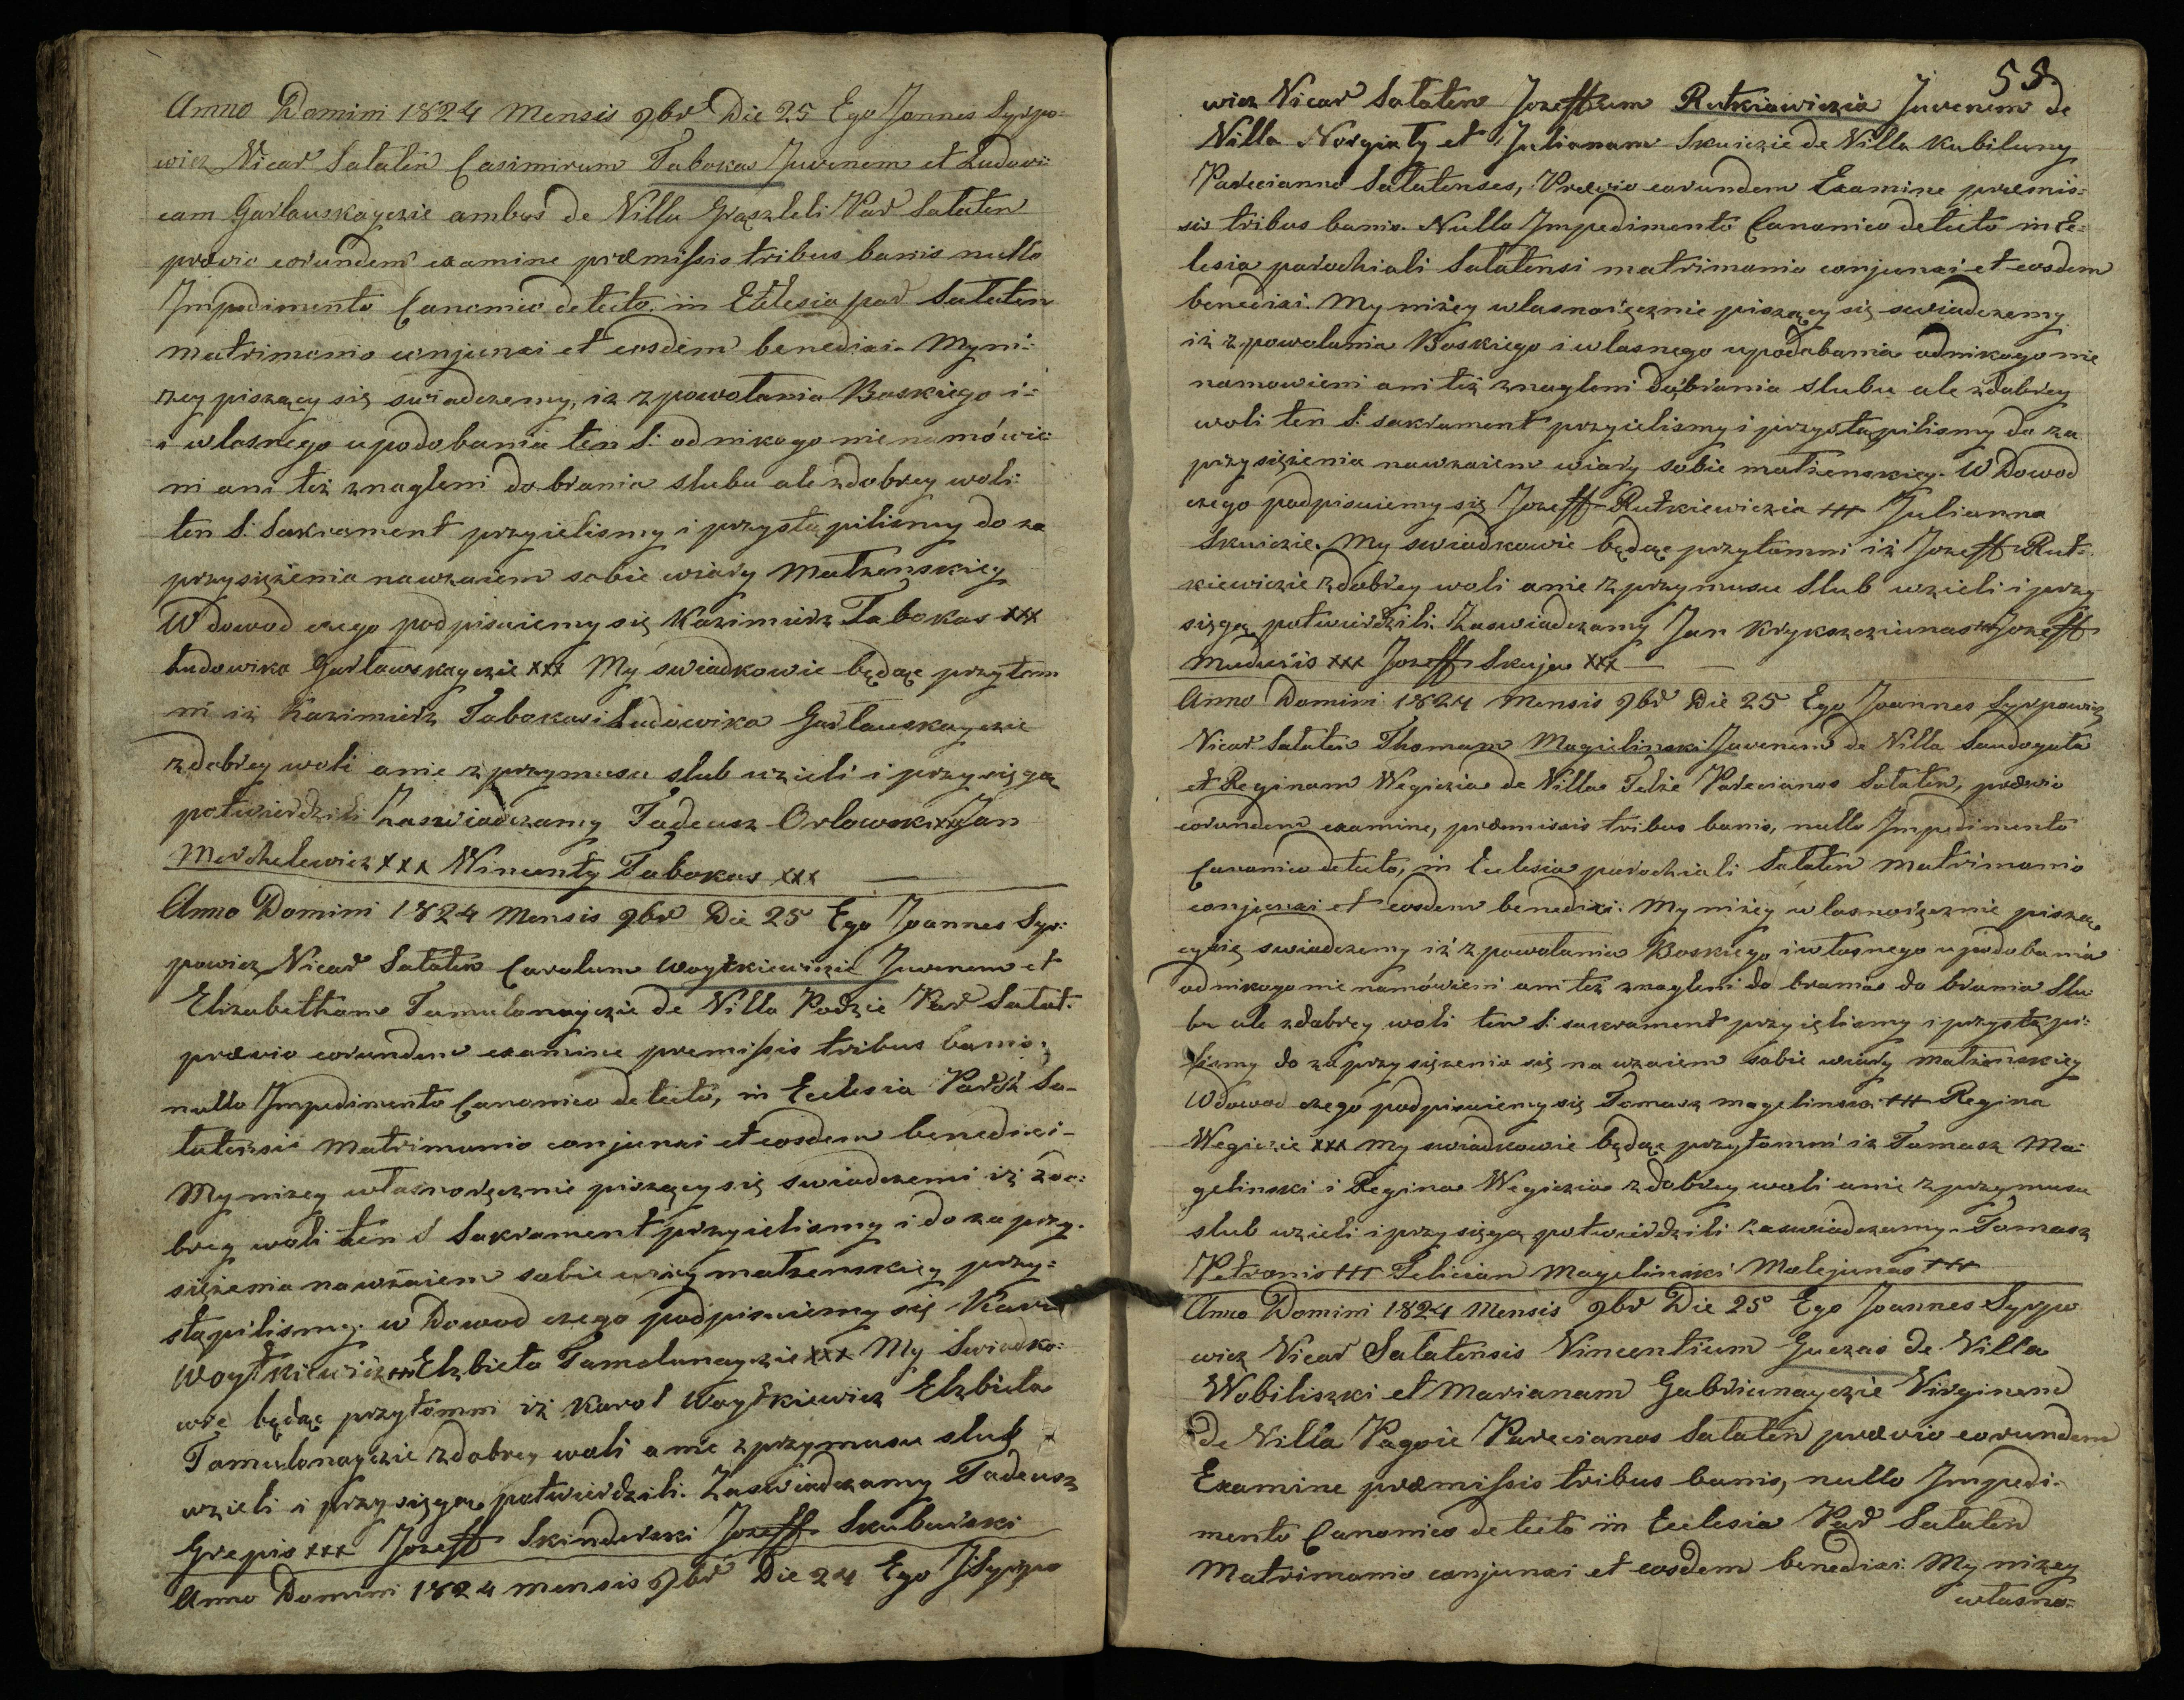 Anno Domini 1824 Mensis 9br Die 25 Ego Joannes Syrpo-
wicz Vicar Sataten Casimirum Tabokas Juvenem et Ludowi:
cam Garlauskayczie ambos de Villa Graszleli Par Sataten
prævio eorundem examine præmissis tribus banis nullo
Impedimento Canonico detecto in Ecclesia par Sataten
matrimonio conjunxi et eosdem benedixi. My ni:
zey piszący się swiadczemy, iz z powołania Boskiego i=
i własnego upodobania ten S: od nikogo nie namówie:
ni ani też znagleni do brania slubu ale z dobrey woli
ten S: Sakrament przyielismy i przystąpilismy do za
przysiężenia nawzaiem sobie wiary Matzenskiey
W dowod czego podpisuiemy się Kazimierz Tabokas xxx
Ludowika Garlawskayczie xxx My swiadkowie będąc przytom
ni iż Kazimierz Tabokas i Ludowika Garlauskayczie
z dobrey woli a nie z przymusu slub wzieli i przysięgą
potwierdzili Zaswiadczamy Tadeusz Orlowski xxx Jan
Merchelewicz xxx Wincenty Tabokas xxx
Anno Domini 1824 Mensis 9br Die 25 Ego Joannes Syr:
powicz Vicar Sataten Carolum Woytkiewiczie Juvenem et
Elizabetham Tamulonayczie de Villa Podzie Par Satat.
prævio eorundem examine premissis tribus banis,
nullo Impedimento Canonico detecto, in Ecclesia Parch Sa-
tatensis Matrimonio conjunxi et eosdem benedixi-
My nizey własnoręcznie piszący się swiadczemi iż z do:
brey woli ten S Sakrament przyielismy i do za przy.
siężenia nawzaiem sobie wiary matzenskiey przy=
stąpilismy. w Dowod czego podpisuiemy się Karol
Woytkiewicz xxx Elzbieta Tamolunayczie xxx My Swiadko:
wie będąc przytomni iż Karol Woytkiewicz Elzbieta
Tamulonayczie z dobrey woli a nie z przymusu slub
wzieli i przysięgą potwierdzili. Zaswiadczamy Tadeusz
Grepis xxx Jozeff Skinderski Jozeff Skuburski
Anno Domini 1824 mensis 9br Die 24 Ego J Syrpo
58
wicz Vicar Sataten Jozeffum Rutkiawiczia Juvenem de
Villa Norgiaty et Julianam Skuiczie de Villa Kubiluny
Parecianos Satatenses, Prævio eorundem Examine præmis=
sis tribus banis. Nullo Impedimento Canonico detecto in Ec=
lesia parochiali Satatensi matrimonio conjunxi et eosdem
benedixi. My niżey własnoręcznie piszący się swiadczemy
iż z powolania Boskiego i wlasnego upodobania od nikogo nie
namowieni ani też znagleni do brania slubu ale z dobrey
woli ten S: sakrament przyielismy i przystąpilismy do za
przysiężenia nawzaiem wiary sobie matzenskiey. W Dowod
czego podpisuiemy się Jozeff Rutkiewiczia xxx Julianna
Skuiczie. My swiadkowie będąc przytomni iż Jozeff Rut:
kiewiczie z dobrey woli a nie z przymusu Slub wzieli i przy
sięgą potwierdzili. Zaswiadczamy Jan Krykszcziunas xxx Jozeff
Muduris xxx Jozeff Skuja xxx
Anno Domini 1824 Mensis 9br Die 25 Ego Joannes Syrpowicz
Vicar Sataten Thomam Magielinski Juvenem de Villa Saudogata
et Reginam Wegiczia de Villa Telze Parecianos Sataten, prævio
eorundem examine, præmissis tribus banis, nullo Impedimento
Canonico detecto, in Ecclesia parochiali Sataten Matrimonio
conjunxi et eosdem benedixi: My niżey własnoręcznie pisząc
cy się swiadczemy iż z powołania Boskiego i własnego upodobania
od nikogo nie namówieni ani też znagleni do brania do brania Slu
bu ale z dobrey woli ten S: sakrament przyięlismy i przystąpi=
lismy do zaprzysiężenia się nawzaiem sobie wiary matzenskiey
W dowod czego podpisuiemy się Tomasz Magelinski xxx Regina
Wegiczie xxx My swiadkowie będąc przytomni iz Tomasz Ma-
gelinski i Regina Wegiczia z dobrey woli a nie z przymusu
slub wzieli i przysięgą potwierdzili zaswiadczamy. Tomasz
Petronis xxx Felician Magelinski Malejunas xxx
Anno Domini 1824 Mensis 9br Die 25 Ego Joannes Syrpo
wicz Vicar Satatensis Vincentium Guczas de Villa
Wobiliszki et Marianam Gabriunayczie Virginem
de Villa Pagoie Parecianos Sataten prævio eorundem
Examine præmissis tribus banis, nullo Impedi-
mento Canonico detecto in Ecclesia Par Sataten
Matrimonio conjunxi et eosdem benedixi: My nizey
własno=